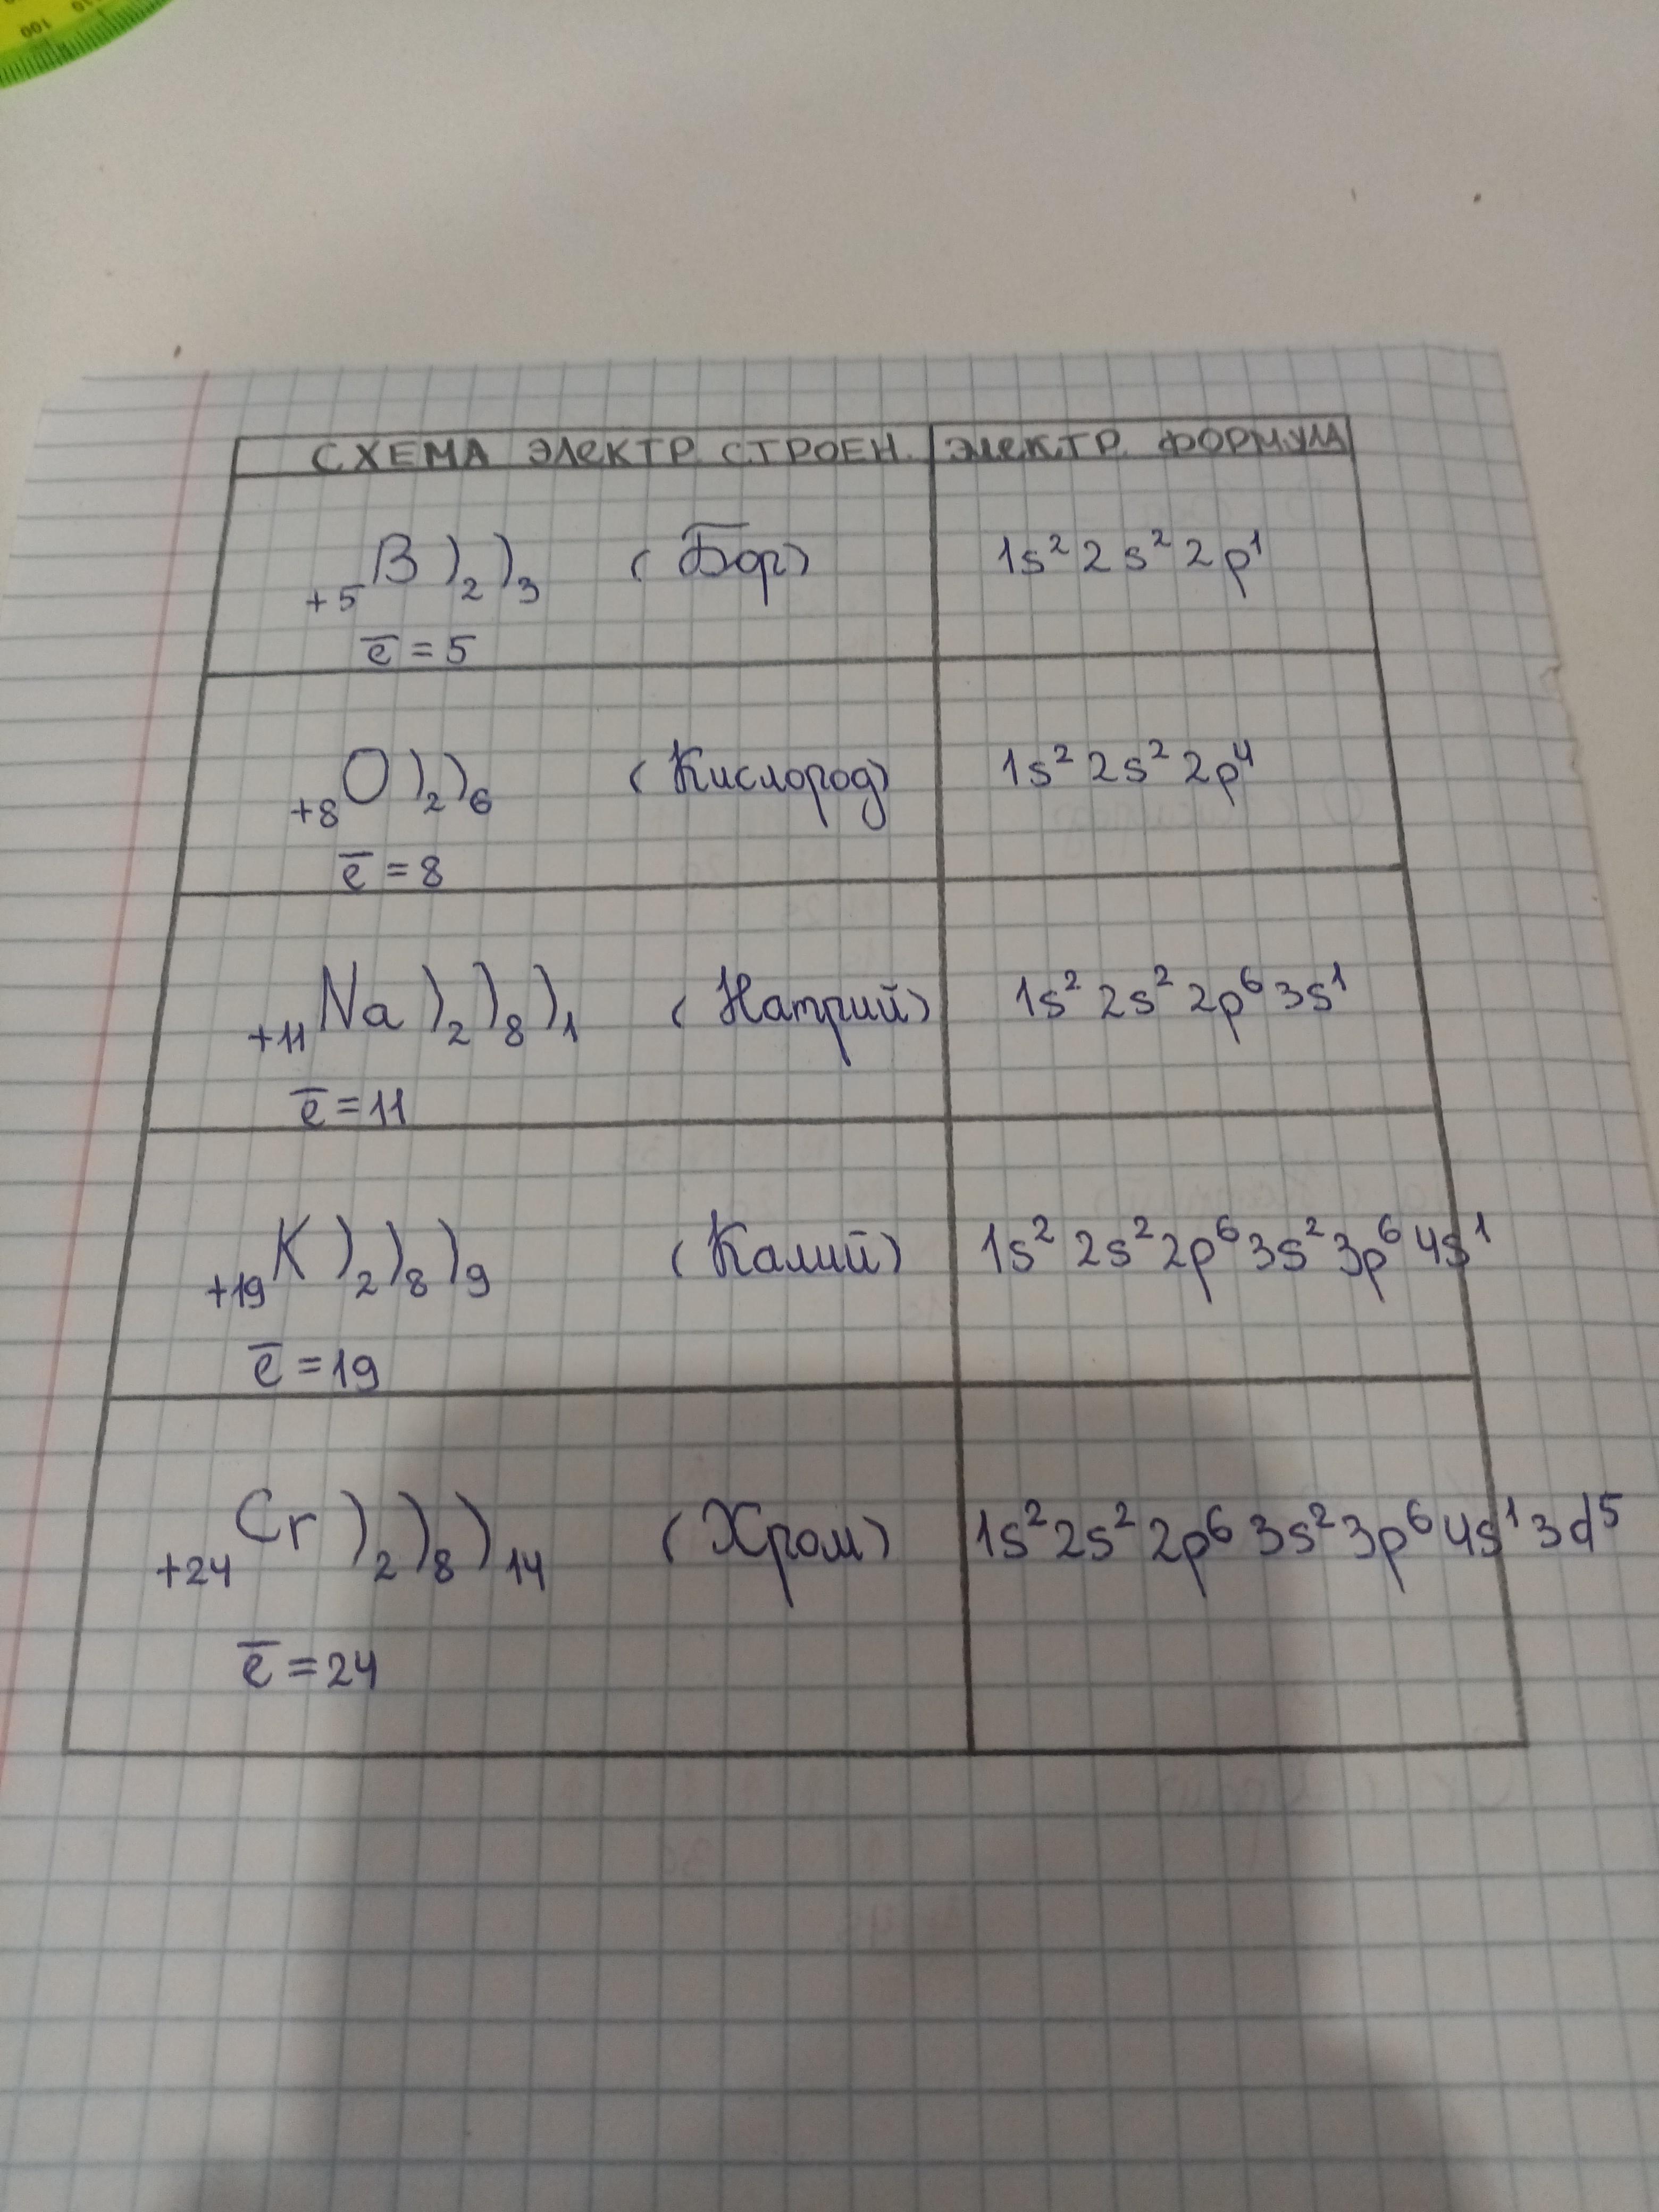 100
СХЕМА ЭЛЕКТР. СТРОЕН. ЭЛЕКТР. ФОРМУЛА
+5 B )2 )3 (Бор) 1s² 2s² 2p¹
e̅ = 5
+8 O )2 )6 (Кислород) 1s² 2s² 2p⁴
e̅ = 8
+11 Na )2 )8 )1 (Натрий) 1s² 2s² 2p⁶ 3s¹
e̅ = 11
+19 K )2 )8 )9 (Калий) 1s² 2s² 2p⁶ 3s² 3p⁶ 4s¹
e̅ = 19
+24 Cr )2 )8 )14 (Хром) 1s² 2s² 2p⁶ 3s² 3p⁶ 4s¹ 3d⁵
e̅ = 24